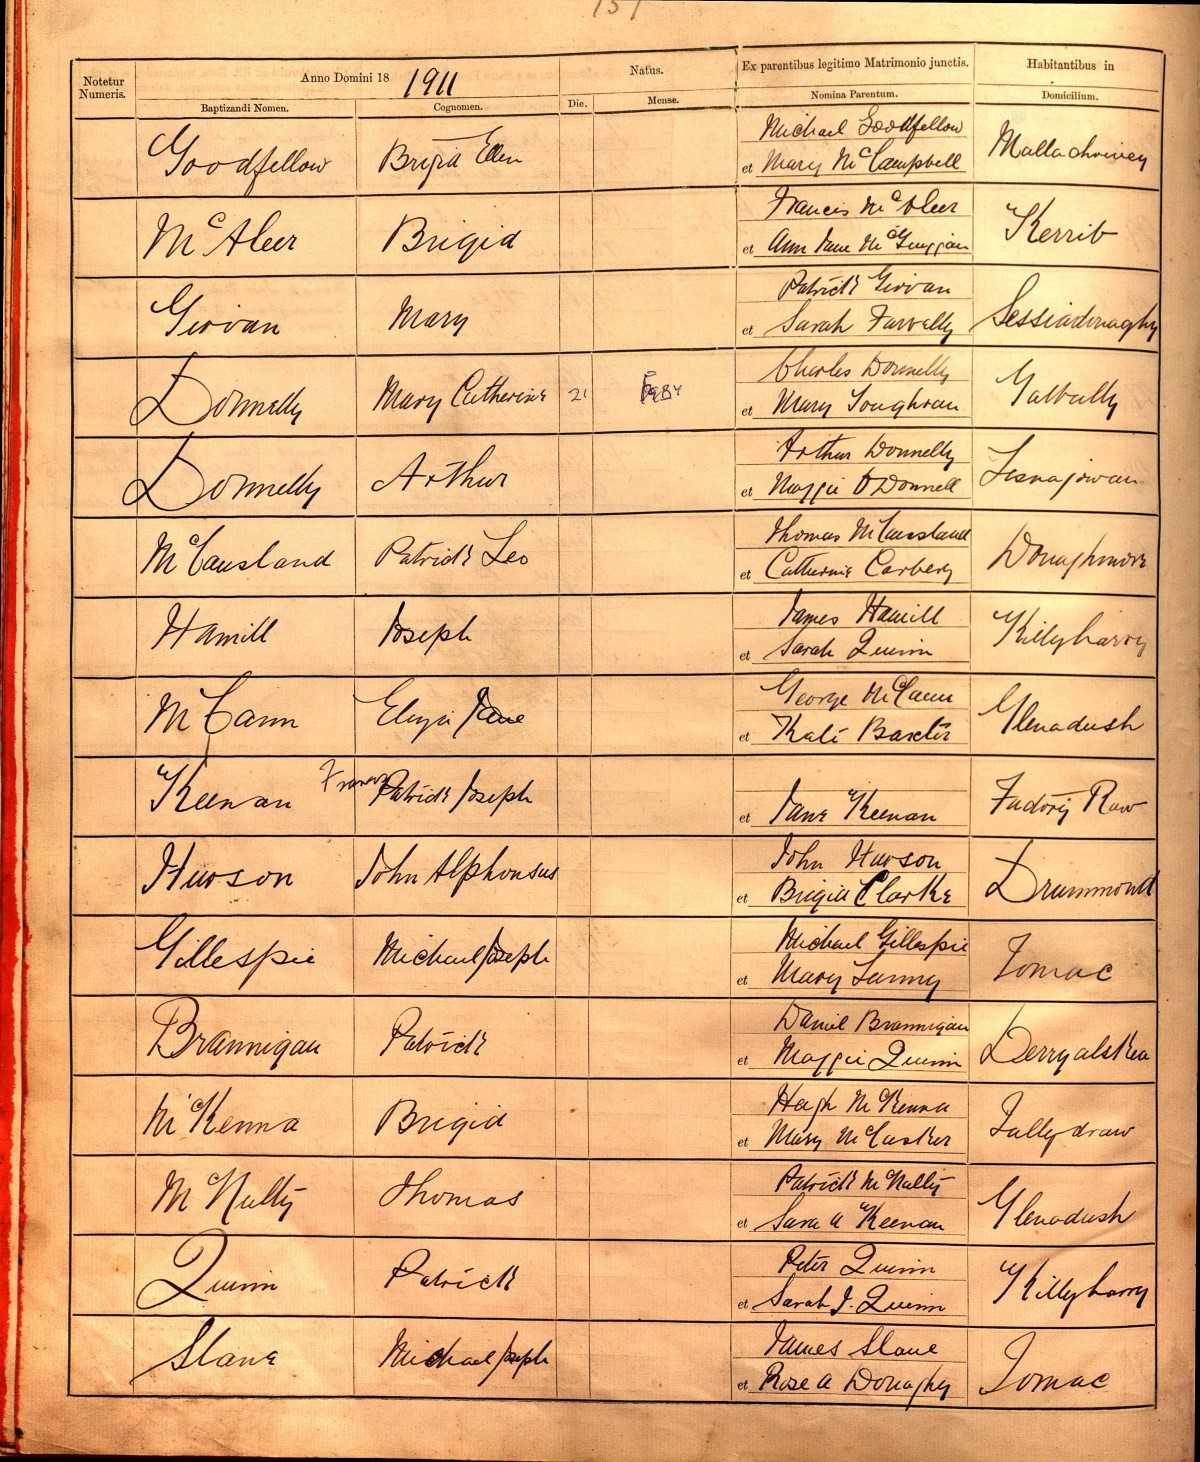 151
Notetur Numeris. Anno Domini 18 1911 Natus. Ex parentibus legitimo Matrimonio junctis. Habitantibus in
Baptizandi Nomen. Cognomen. Die. Mense. Nomina Parentum. Domicilium.
Goodfellow Brigid Ellen Michael Goodfellow
et Mary McCampbell Mallachrivey
McAleer Brigid Francis McAleer
et Ann Jane McGuggan Kerrib
Girvan Mary Patrick Girvan
et Sarah Farrelly Sessiadonaghy
Donnelly Mary Catherine 21 Feby Charles Donnelly
et Mary Loughran Galbally
Donnelly Arthur Arthur Donnelly
et Maggie O'Donnell Lisnagowan
McCausland Patrick Leo Thomas McCausland
et Catherine Carbery Donaghmore
Hamill Joseph James Hamill
et Sarah Quinn Killyharry
McCann Eliza Jane George McCann
et Kate Baxter Glenadush
Keenan Francis Patrick Joseph
et Jane Keenan Factory Row
Hurson John Alphonsus John Hurson
et Brigid Clarke Drummond
Gillespie Michael Joseph Michael Gillespie
et Mary Lanny Tomac
Brannigan Patrick Daniel Brannigan
et Maggie Quinn Derryalskea
McKenna Brigid Hugh McKenna
et Mary McCusker Tullydraw
McNulty Thomas Patrick McNulty
et Sara A Keenan Glenadush
Quinn Patrick Peter Quinn
et Sarah J. Quinn Killyharry
Slane Michael Joseph James Slane
et Rose A Donaghy Tomac